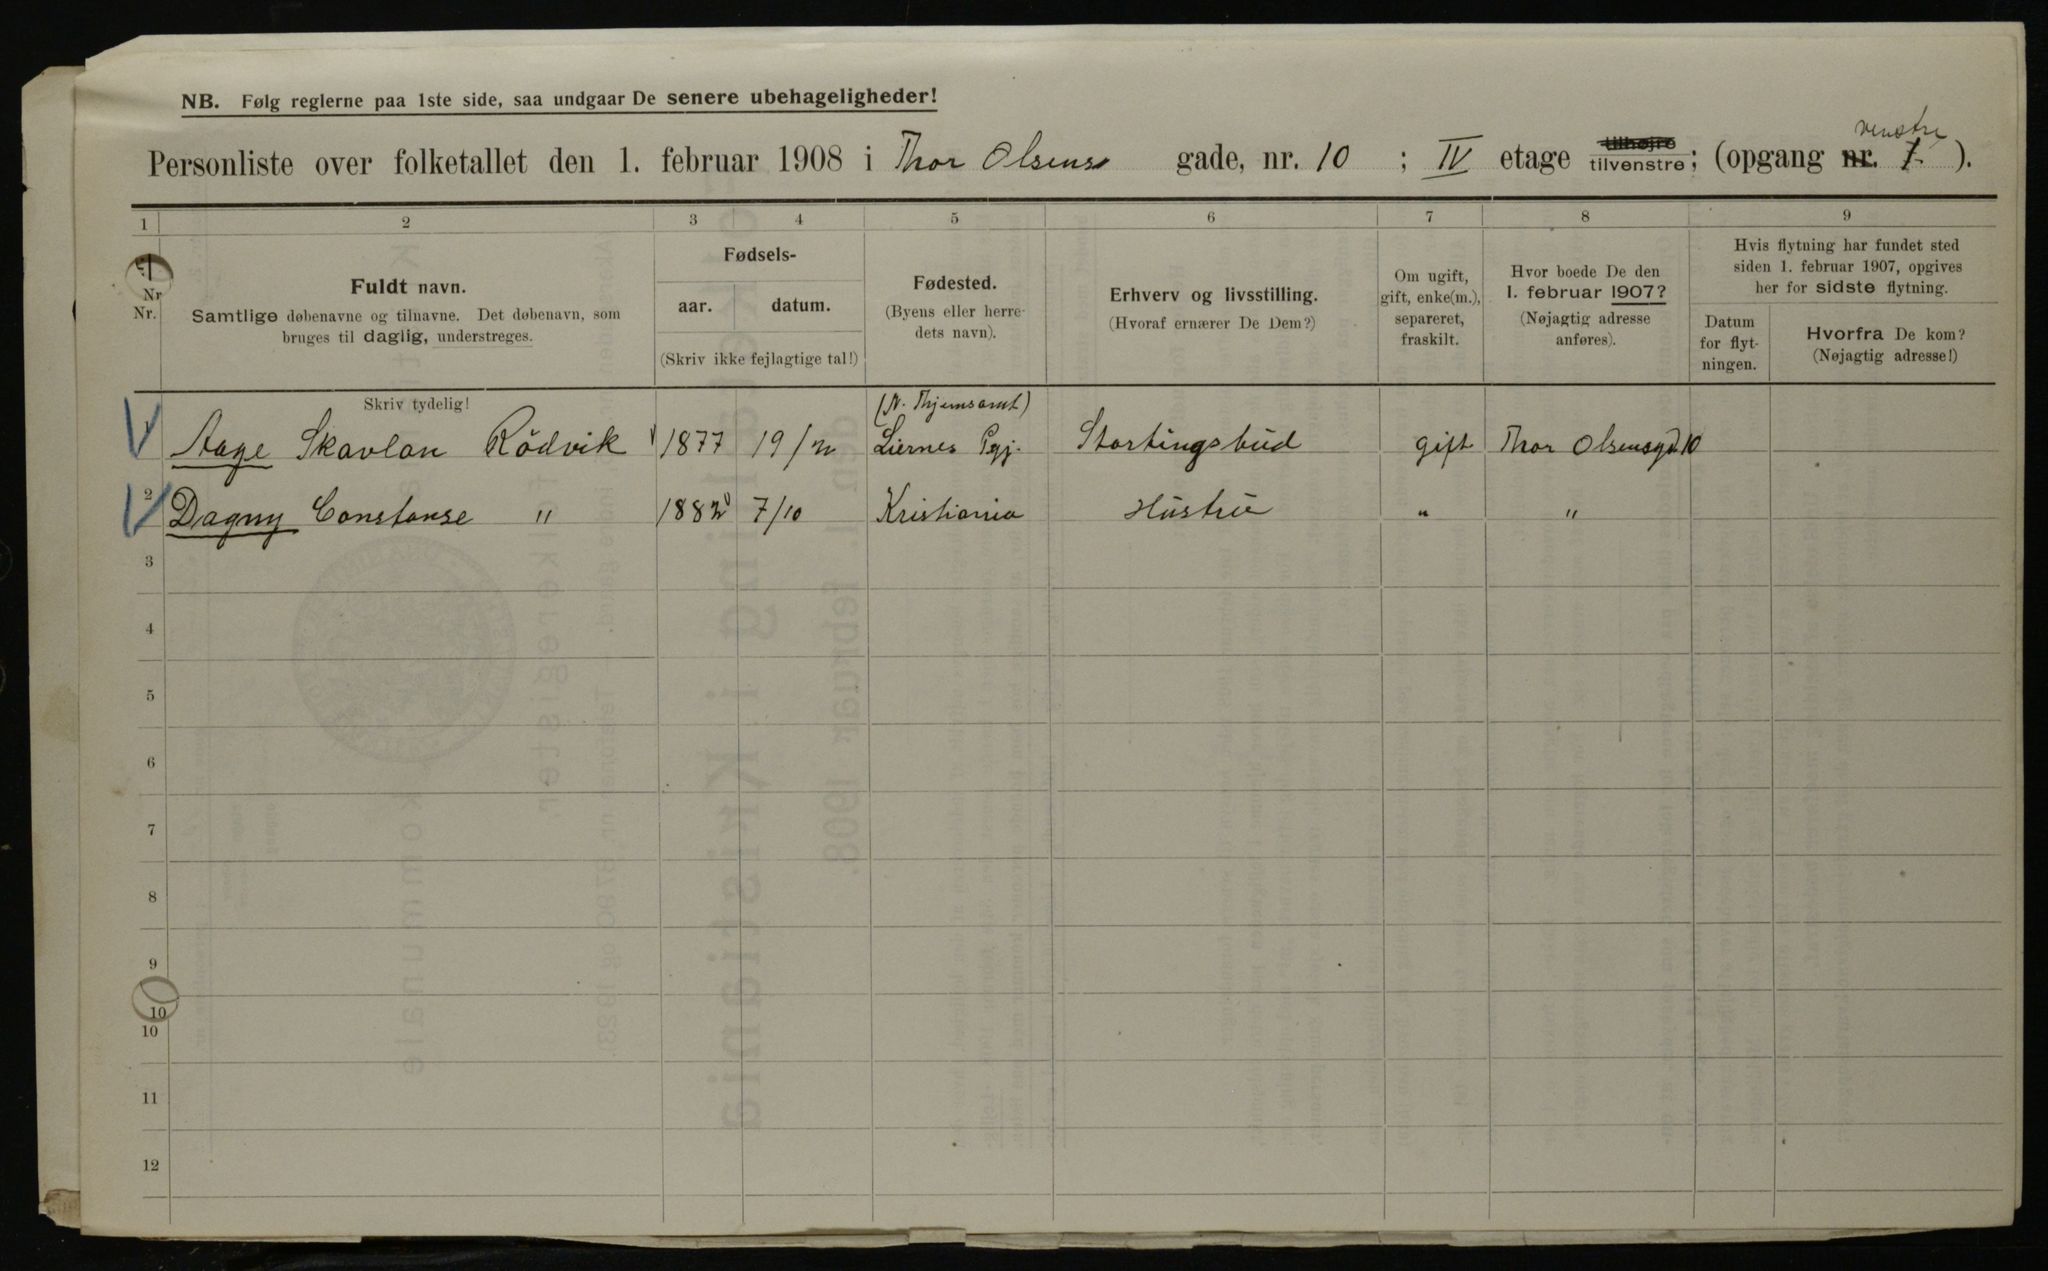 NB. Følg reglerne paa 1ste side, saa undgaar De senere ubehageligheder!
venstre
Personliste over folketallet den 1. februar 1908 i Thor Olsens gade, nr. 10 ; IV etage tilhøjre tilvenstre; (opgang nr. 1 ).
1 2 3 4 5 6 7 8 9
Nr
Nr.
Fuldt navn.
Samtlige døbenavne og tilnavne. Det døbenavn, som
bruges til daglig, understreges.
Fødsels-
aar. datum.
(Skriv ikke fejlagtige tal!)
Fødested.
(Byens eller herre-
dets navn).
Erhverv og livsstilling.
(Hvoraf ernærer De Dem?)
Om ugift,
gift, enke(m.),
separeret,
fraskilt.
Hvor boede De den
1. februar 1907?
(Nøjagtig adresse
anføres).
Hvis flytning har fundet sted
siden 1. februar 1907, opgives
her for sidste flytning.
Datum
for flyt-
ningen.
Hvorfra De kom?
(Nøjagtig adresse!)
Skriv tydelig!
(N. Thjemsamt)
1 Aage Skavlan Rödvik 1877 19/2 Liernes Pgj. Stortingsbud gift Thor Olsensgd 10
2 Dagny Constanse " 1882 7/10 Kristiania Hustru " "
3
4
5
6
7
8
9
10
10
11
12